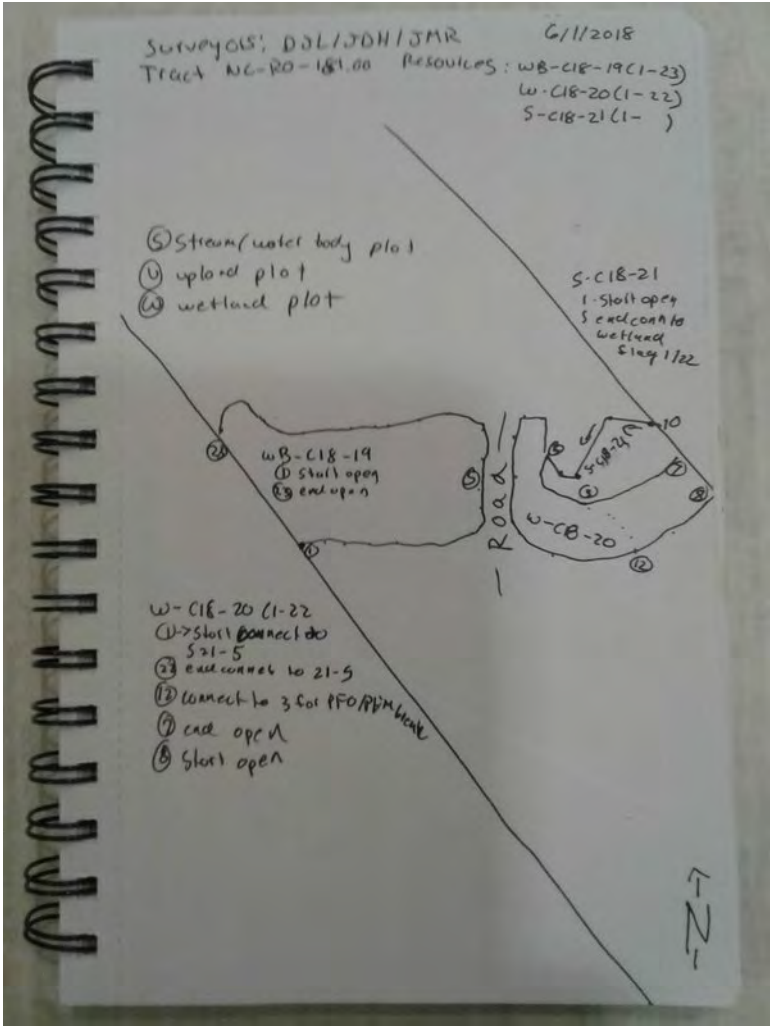 Surveyors: DJL/JDH/JMR 6/1/2018
Tract NC-RO-181.00 Resources: WB-C18-19(1-23)
W-C18-20(1-22)
S-C18-21(1- )
S Stream/water body plot
U upland plot
W wetland plot
S-C18-21
1-start open
5 end conn to
wetland
flag 1/22
10
WB-C18-19
1 start open
23 end open
23
S
- Road -
S-C18-21
7
8
W-C18-20
12
1
W-C18-20 (1-22
1-> start connect to
S21-5
22 end connet to 21-5
12 connect to 3 for PFO/PEM break
7 end open
8 start open
-Z->